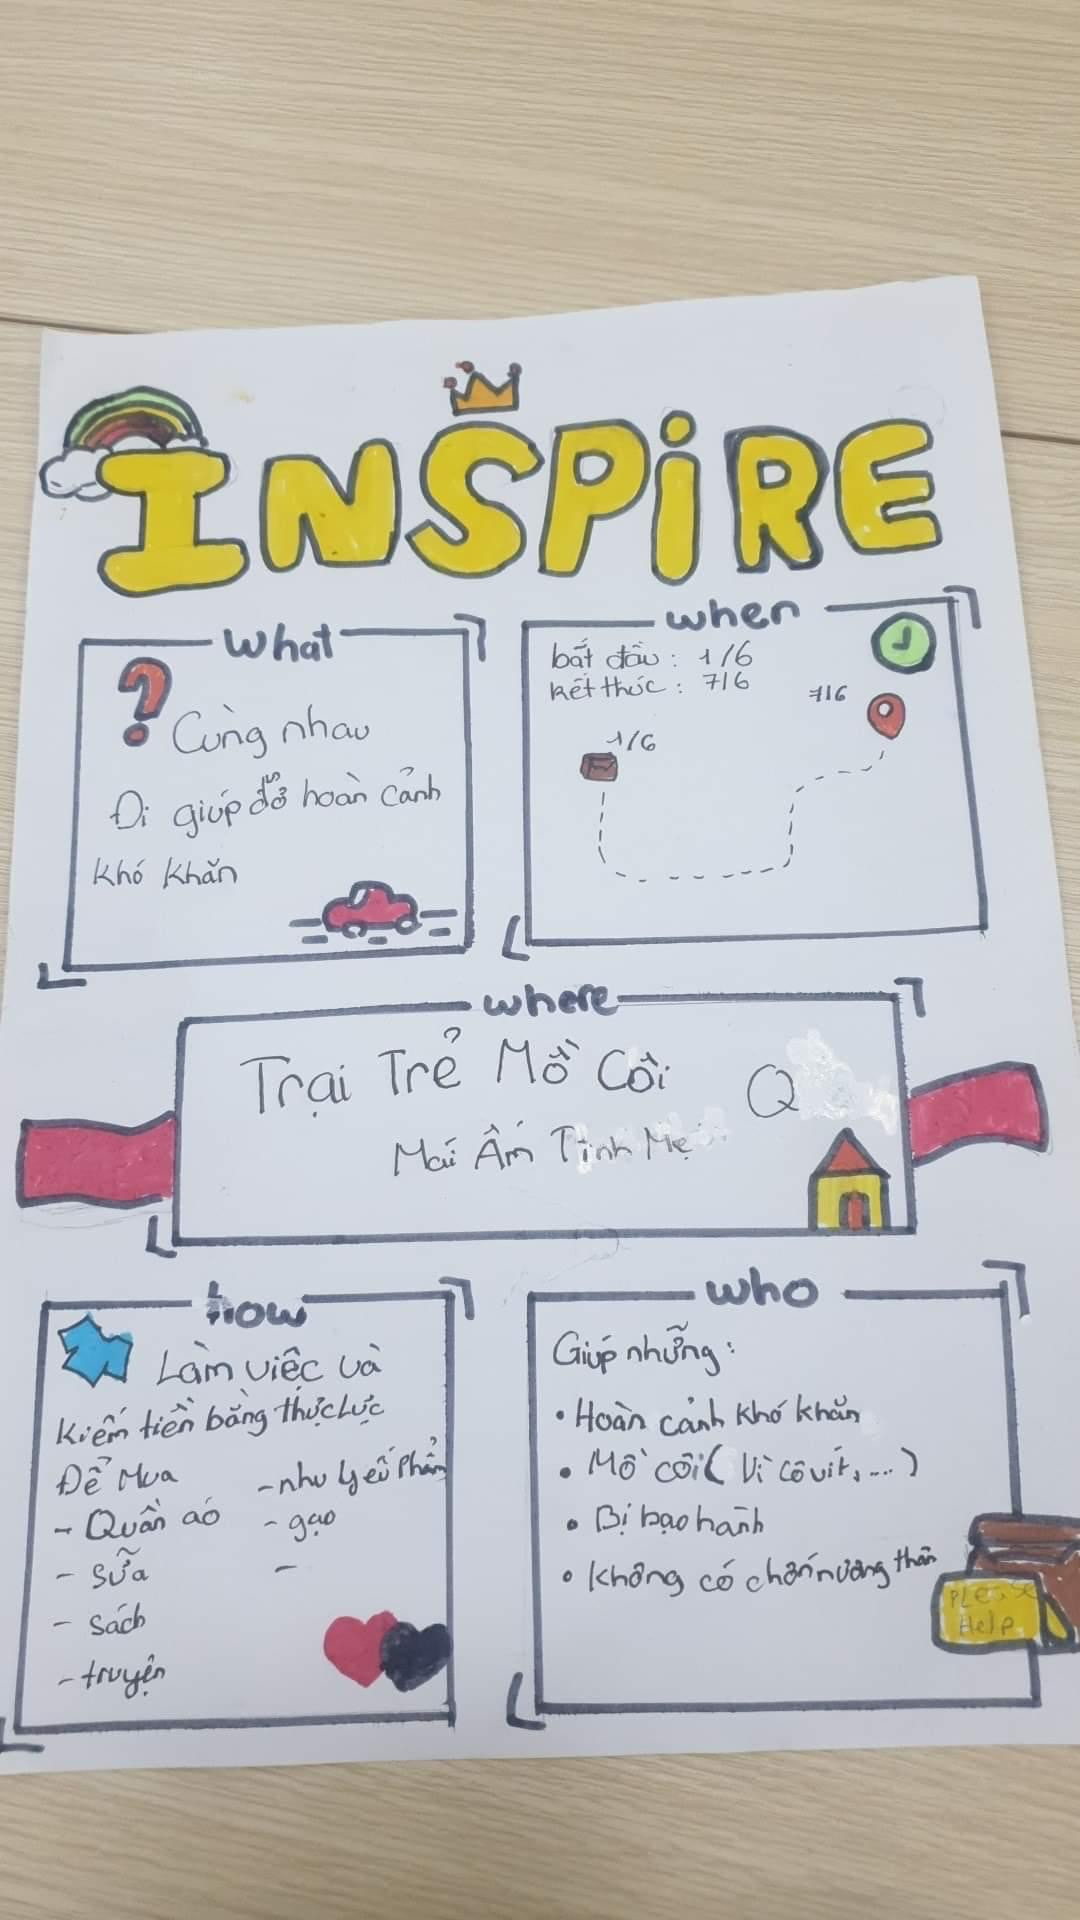 INSPiRE
what
Cùng nhau
Đi giúp đỡ hoàn cảnh
khó khăn
when
bắt đầu: 1/6
kết thúc: 7/6
7/6
1/6
where
Trại Trẻ Mồ Côi Q
Mái Ấm Tình Mẹ
how
Làm việc và
kiếm tiền bằng thực lực
Để Mua
- Quần áo
- sữa
- sách
- truyện
- nhu yếu Phẩm
- gạo
-
who
Giúp những:
• Hoàn cảnh khó khăn
• Mồ côi (Vì Côvít,....)
• Bị bạo hành
• không có chốn nương thân
PLease
Help